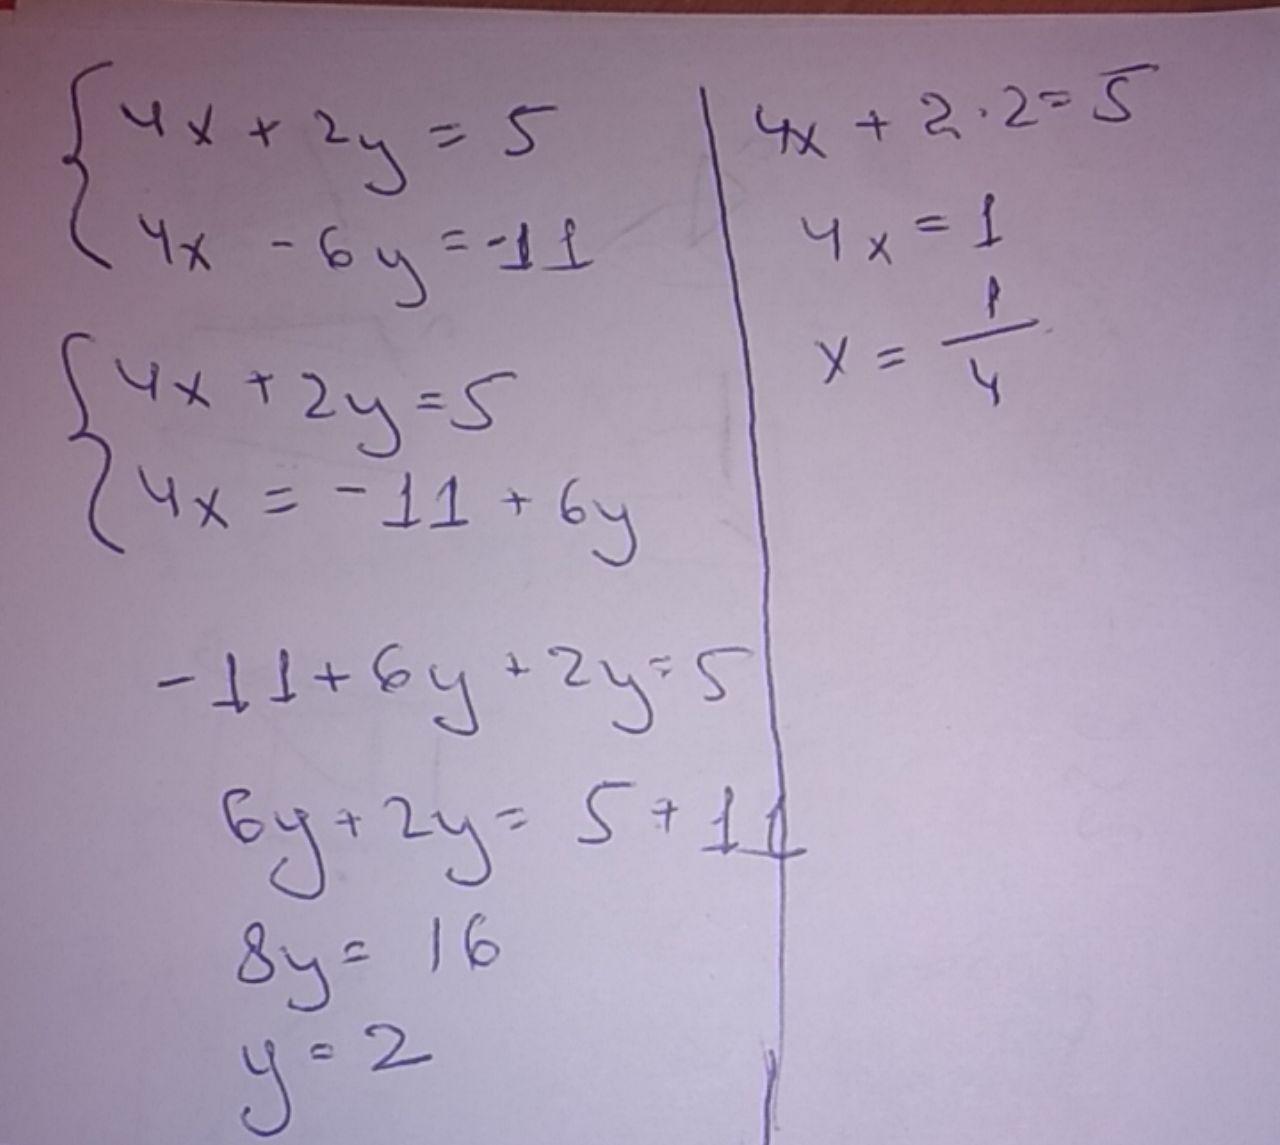 4x + 2y = 5
4x - 6y = -11
4x + 2y = 5
4x = -11 + 6y
-11 + 6y + 2y = 5
6y + 2y = 5 + 11
8y = 16
y = 2
4x + 2 · 2 = 5
4x = 1
x = 1/4